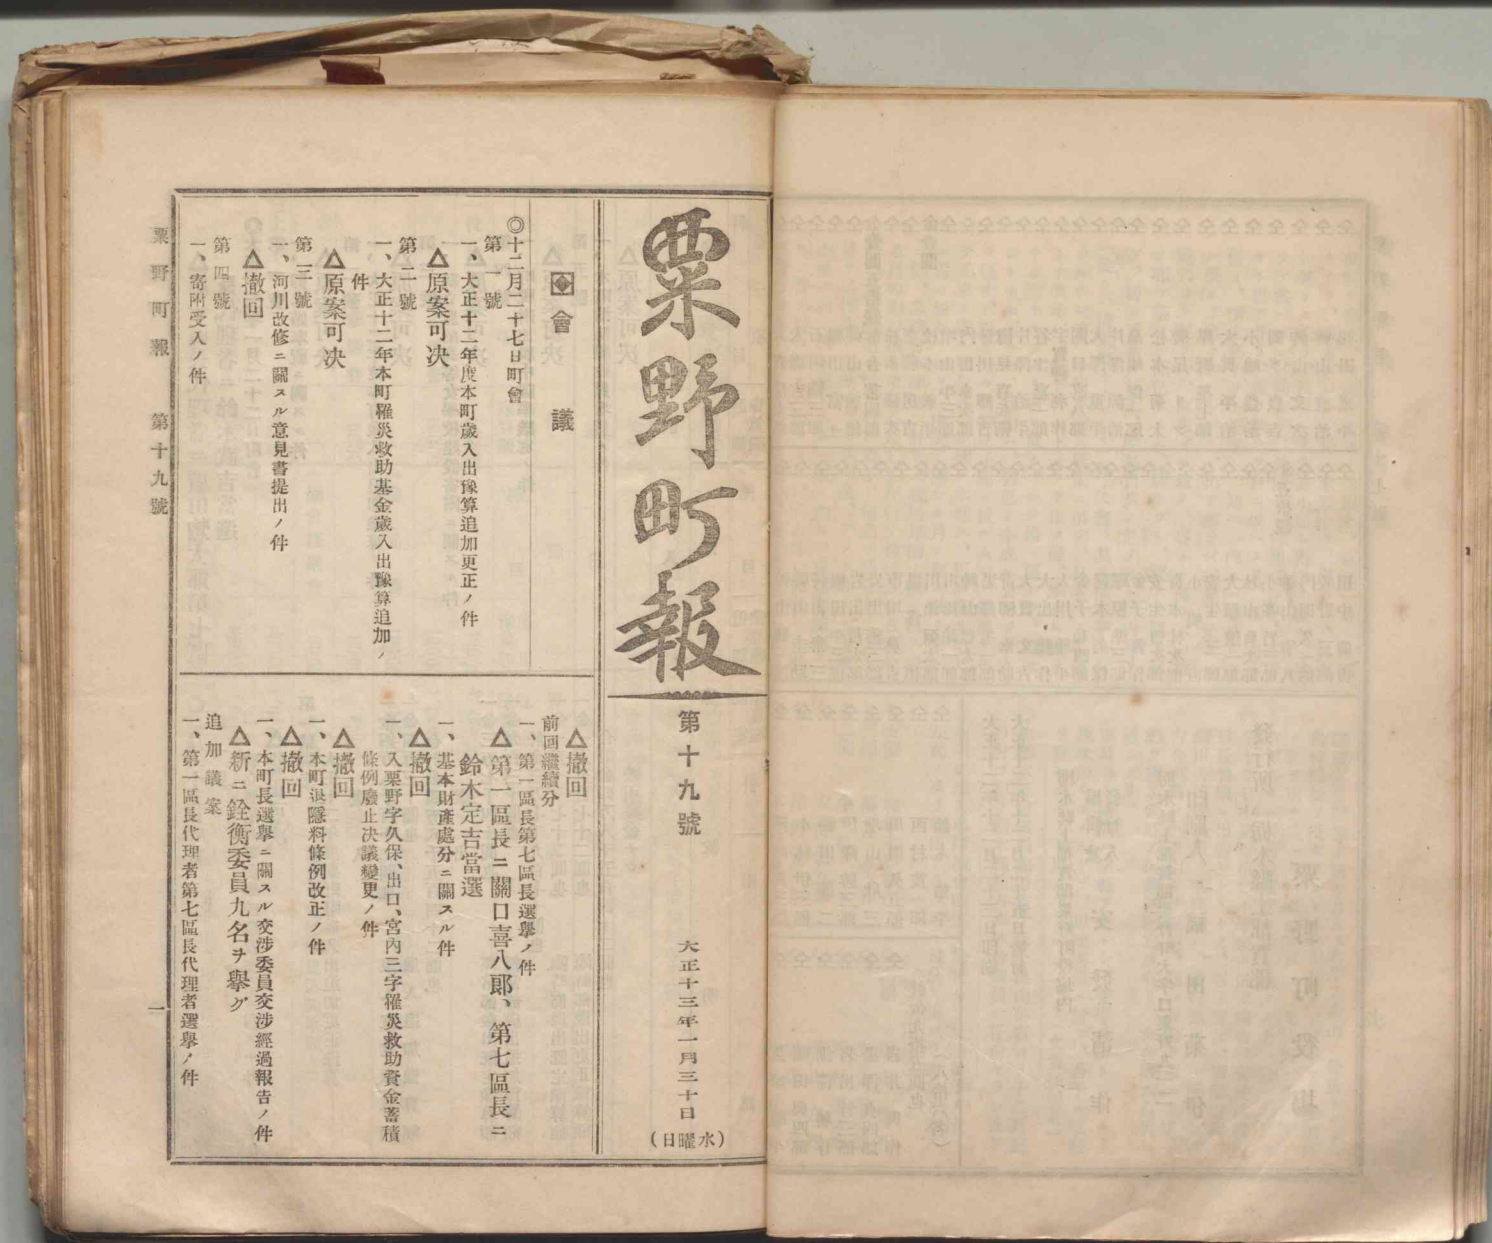 粟野町報
第十九號
大正十三年一月三十日
(水曜日)
會議
◎十二月二十七日町會
第一號
一、大正十二年度本町歳入出豫算追加更正ノ件
△原案可决
第二號
一、大正十二年本町罹災救助基金歳入出豫算追加ノ
件
△原案可决
第三號
一、河川改修ニ關スル意見書提出ノ件
△撤回
第四號
一、寄附受入ノ件
△撤回
前回繼續分
一、第一區長第七區長選擧ノ件
△第一區長ニ關口喜八郎、第七區長ニ
鈴木定吉當選
一、基本財產處分ニ關スル件
△撤回
一、入粟野字久保、出口、宮內三字罹災救助資金蓄積
條例廢止决議變更ノ件
△撤回
一、本町退隱料條例改正ノ件
△撤回
一、本町長選擧ニ關スル交涉委員交涉經過報告ノ件
△新ニ銓衡委員九名ヲ擧グ
追加議案
一、第一區長代理者第七區長代理者選擧ノ件
粟野町報 第十九號
一